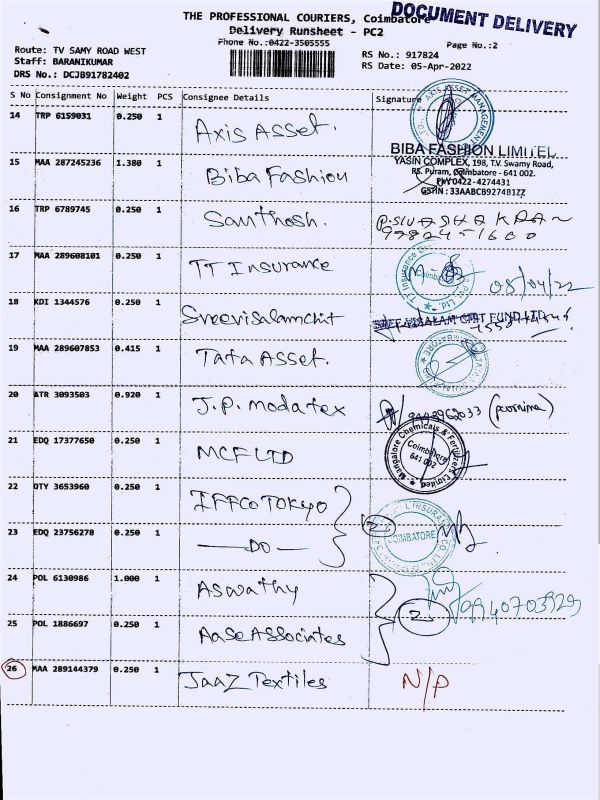 THE PROFESSIONAL COURIERS, Coimbatore
DOCUMENT DELIVERY
Delivery Runsheet - PC2
Phone No.:0422-3505555
Page No.:2
Route: TV SAMY ROAD WEST
RS No.: 917824
Staff: BARANIKUMAR
RS Date: 05-Apr-2022
DRS No.: DCJB91782402
S No Consignment No Weight PCS Consignee Details Signature
14 TRP 6159031 0.250 1 Axis Asset.
AXIS ASSET MANAGEMENT
BIBA FASHION LIMITED
YASIN COMPLEX, 198, T.V. Swamy Road,
RS. Puram, Coimbatore - 641 002.
PH: 0422 - 4274431
GSTIN : 33AABCB9274B1ZZ
15 MAA 287245236 1.380 1 Biba Fashion
16 TRP 6789745 0.250 1 Santhosh.
17 MAA 289608101 0.250 1 TT Insurance
TT Insurance
Coimbatore
Pvt. Ltd.
05/04/22
18 KDI 1344576 0.250 1 Sreevisalamchit
SREE VISALAM CHIT FUND LTD
19 MAA 289607853 0.415 1 Tata Asset.
COIMBATORE
20 ATR 3093503 0.920 1 J.P. modatex
(poornima)
21 EDQ 17377650 0.250 1 MCF LTD
Mangalore Chemicals & Fertilizers Limited
Coimbatore
641 002
22 OTY 3653960 0.250 1 IFFCO TOKYO
23 EDQ 23756278 0.250 1 — DO —
2
COIMBATORE
24 POL 6130986 1.000 1 Aswathy
9940703929
25 POL 1886697 0.250 1 Aase Associates
2
26 MAA 289144379 0.250 1 JaaZ Textiles
N/P